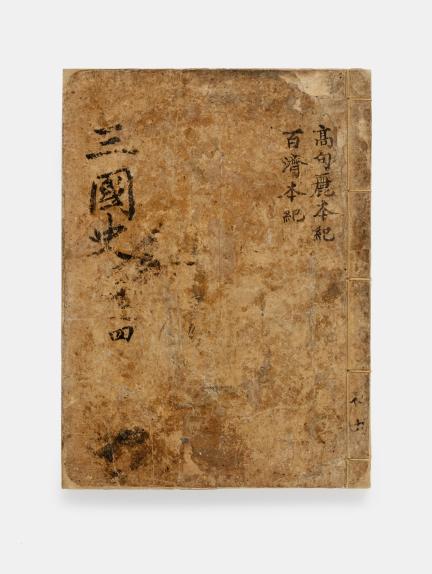 高句麗本紀
百濟本紀
三國史
四